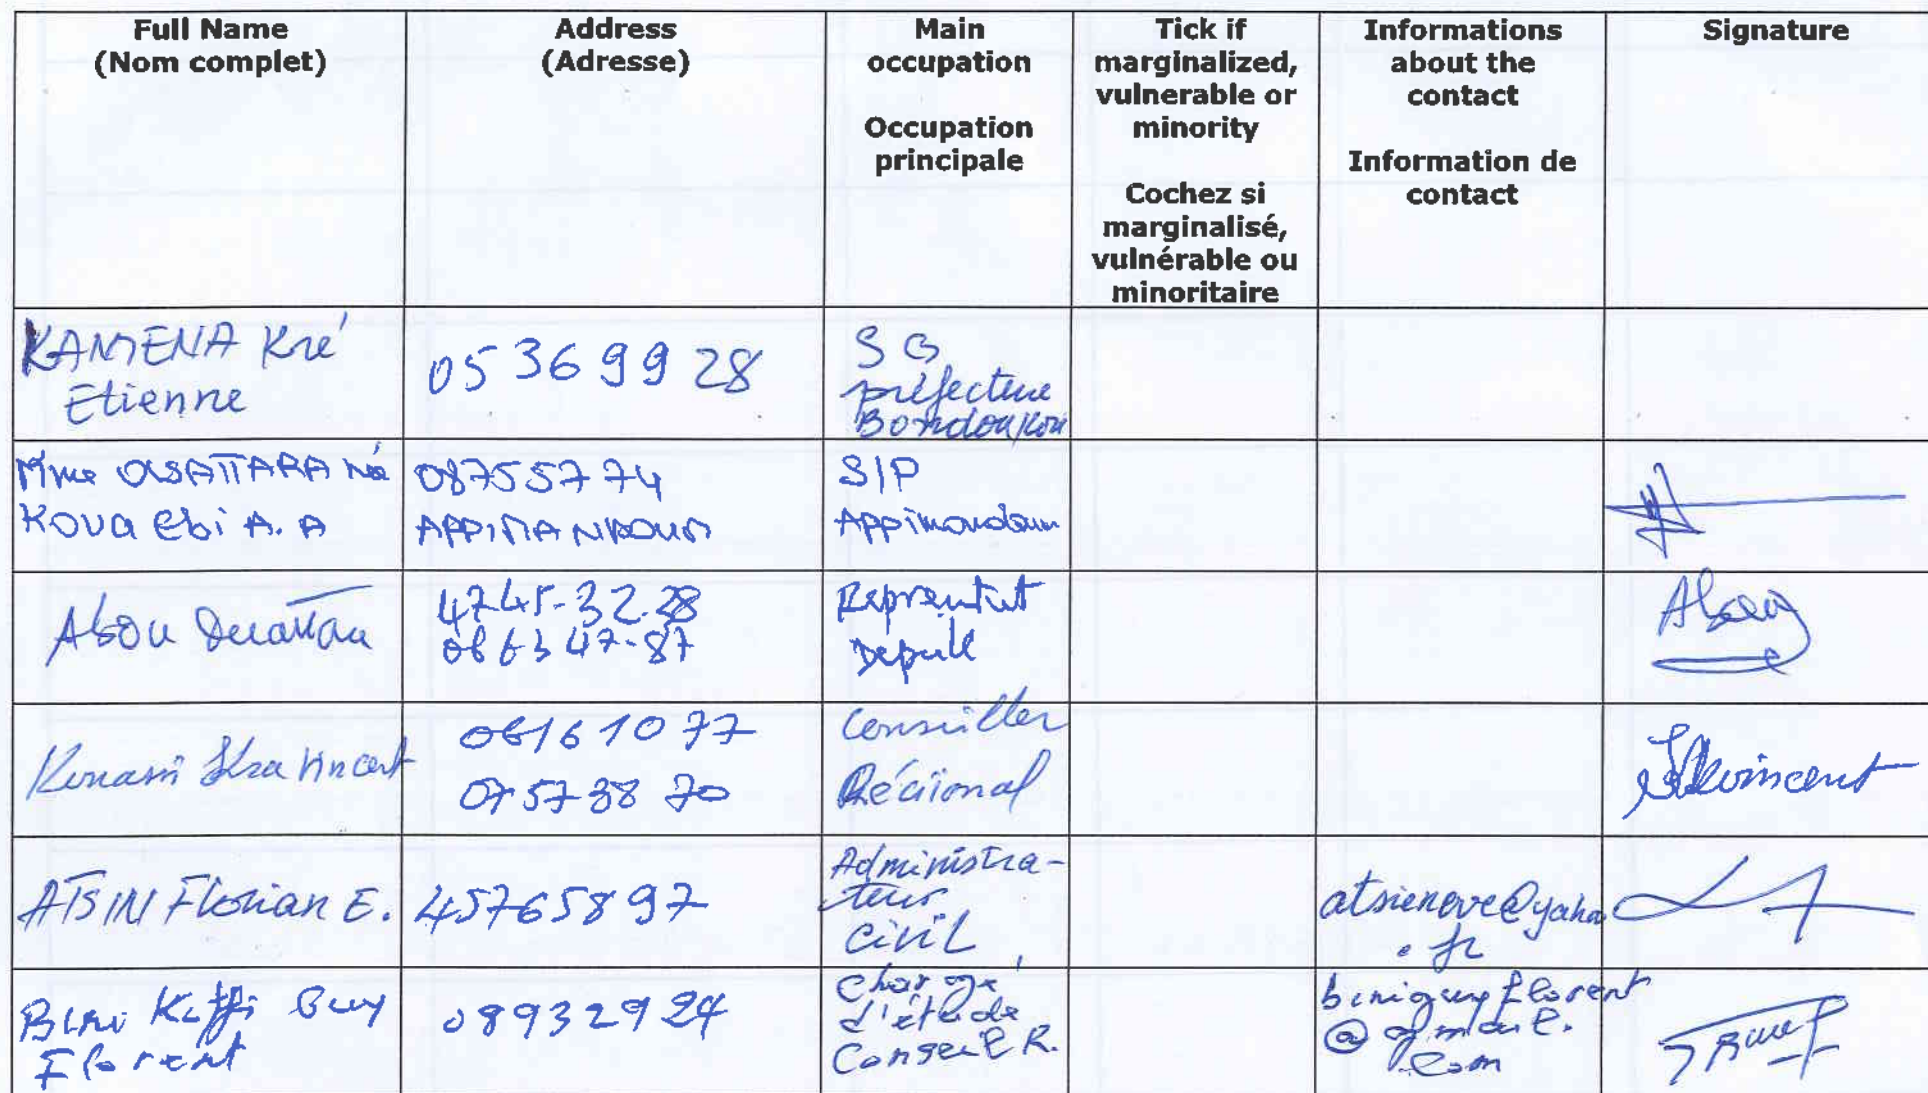 Full Name
(Nom complet)
Address
(Adresse)
Main
occupation
Occupation
principale
Tick if
marginalized,
vulnerable or
minority
Cochez si
marginalisé,
vulnérable ou
minoritaire
Informations
about the
contact
Information de
contact
Signature
KAMENA Kré
Etienne
05 36 99 28
SG
préfecture
Bondoukou
Mme OUATTARA Née
KOUA EBI A. A
08755774
APPIMANDOUM
S/P
Appimandoum
Abou Ouattara
4745-32.28
06 63 47-87
Député
Vincent
06161077
07573870
Conseiller
Régional
ATSIN Florian E.
45765897
Administra-
teur
civil
atsieneve@yahoo
.fr
Bini Koffi Guy
Florent
08932924
Chargé
d'étude
Conseil R.
biniguyflorent
@gmail.
com